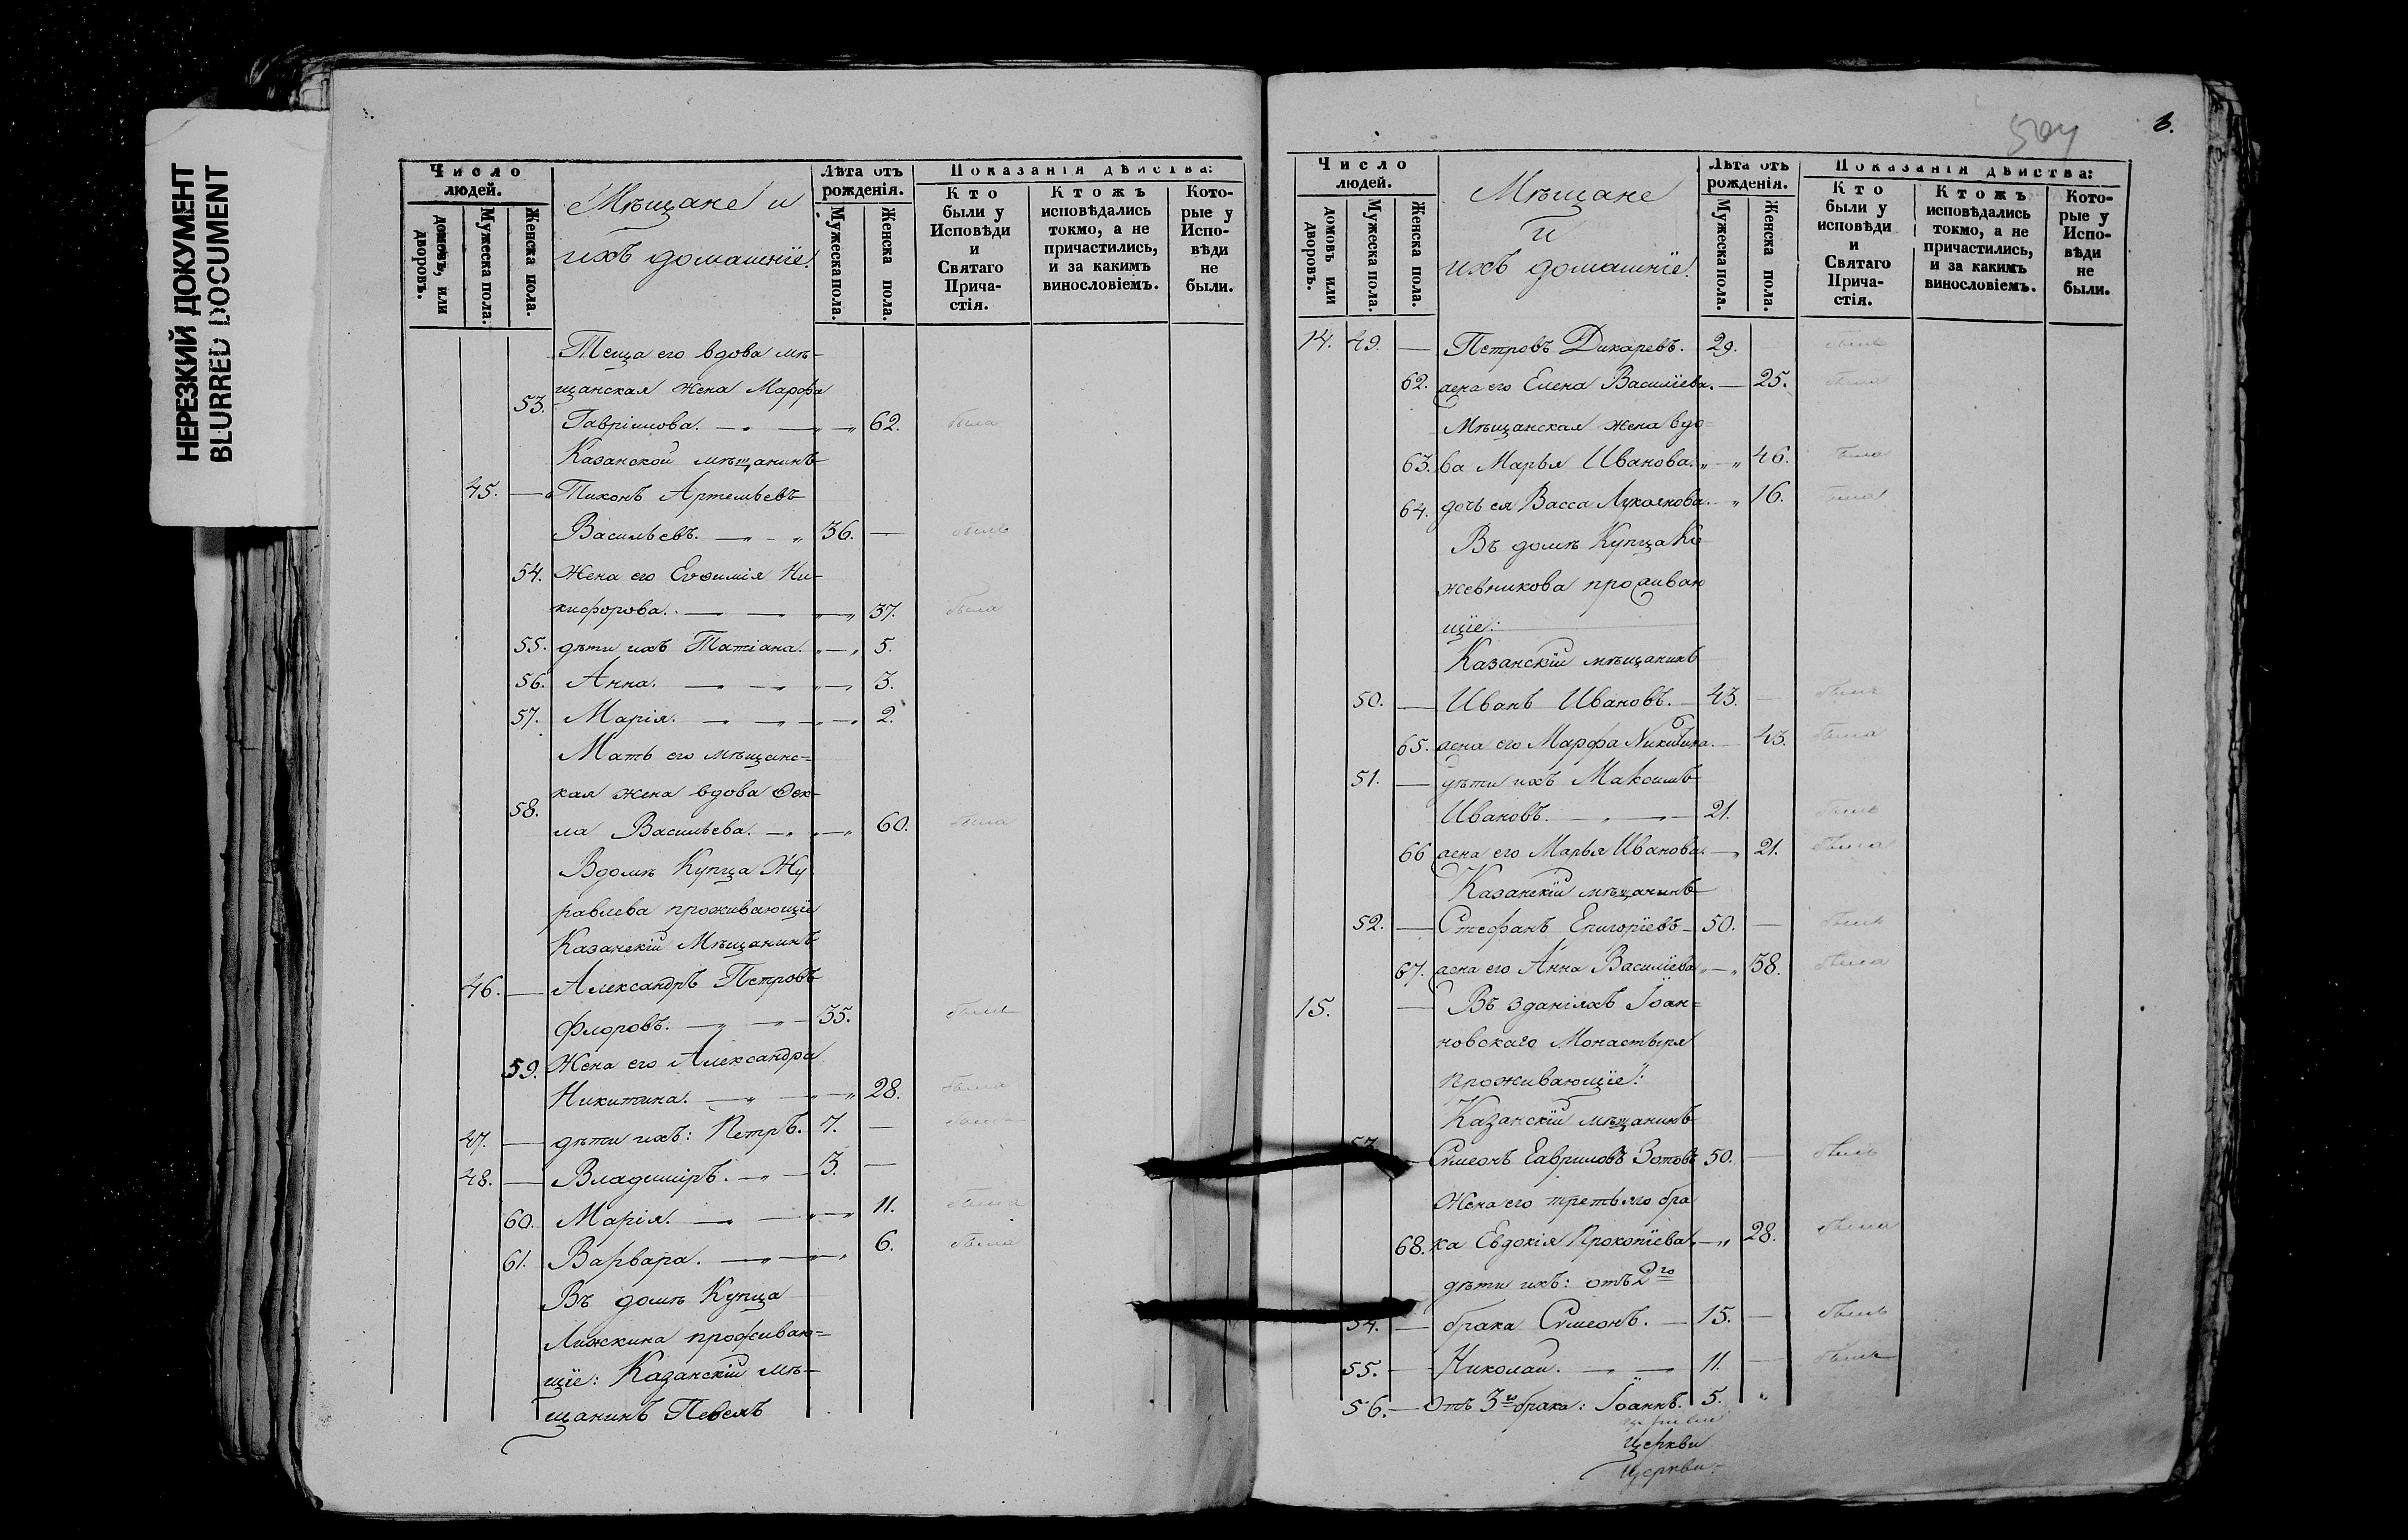 НЕРЕЗКИЙ ДОКУМЕНТ
BLURRED DOCUMENT
Число людей.
домовъ, или дворовъ.
Мужеска пола.
Женска пола.
Мѣщане и
ихъ домашніе.
Лѣта отъ рожденія.
Мужеска пола.
Женска пола.
Показанія дѣйства:
Кто были у Исповѣди и Святаго Причастія.
Ктожъ исповѣдались токмо, а не причастились, и за какимъ винословіемъ.
Которые у Исповѣди не были.
Теща его вдова мѣ-
щанская жена Марфа
53. Гавріилова. 62. была
Казанской мѣщанинъ
45. — Тихонъ Артемьевъ
Васильевъ. 36. — былъ
54. Жена его Евѳимія Ни-
кифорова. 37. была
55. дѣти ихъ Татіана. 5.
56. Анна. 3.
57. Марія. 2.
Мать его мѣщанс=
кая жена вдова Ѳек-
58. ла Васильева. 60. была
Вдомѣ Купца Жу
равлева проживающіе
Казанскій Мѣщанинъ
46. — Александръ Петровъ
Флоровъ. 35. былъ
59. Жена его Александра
Никитина. 28. была
47. — дѣти ихъ: Петръ. 7. —
48. — Владиміръ. 3. —
60. Марія. 11. была
61. Варвара. 6. была
Въ домѣ Купца
проживаю=
щіе: Казанскій мѣ-
щанинъ Павелъ
504 6.
Число людей.
домовъ или дворовъ.
Мужеска пола.
Женска пола.
Мѣщане
и
ихъ домашніе.
Лѣта отъ рожденія.
Мужеска пола.
Женска пола.
Показанія дѣйства:
Кто были у исповѣди и Святаго Причастія.
Ктожъ исповѣдались токмо, а не причастились, и за какимъ винословіемъ.
Которые у Исповѣди не были.
14. 49. — Петровъ Дикаревъ. 29. былъ
62. жена его Елена Василіева. — 25. была
Мѣщанская жена вдо=
63. ва Марья Иванова. 46. была
64. дочь ея Васса Лукоянова. 16. была
Въ домѣ Купца Ко
жевникова проживаю
щіе:
Казанскій мѣщанинъ
50. — Иванъ Ивановъ. 43. — былъ
65. жена его Марфа Никитина. 43. была
51. — дѣти ихъ Максимъ
Ивановъ. 21. былъ
66 жена его Марья Иванова. 21. была
Казанскій мѣщанинъ
52. — Стефанъ 50. — былъ
67. жена его Анна Василіева 38. была
15. — Въ зданіяхъ Іоан=
новскаго Монастыря
проживающіе:
Казанскій мѣщанинъ
53. — Сѵмеонъ Гавриловъ Зотовъ 50. — былъ
Жена его третьяго бра
68. ка Евдокія Прокопіева 28. была
дѣти ихъ: отъ 2го
54. — брака Сѵмеонъ. — 15. — былъ
55. — Николай. 11. — былъ
56. — Отъ 3го брака: Іоаннъ. 5.
церкви
церкви